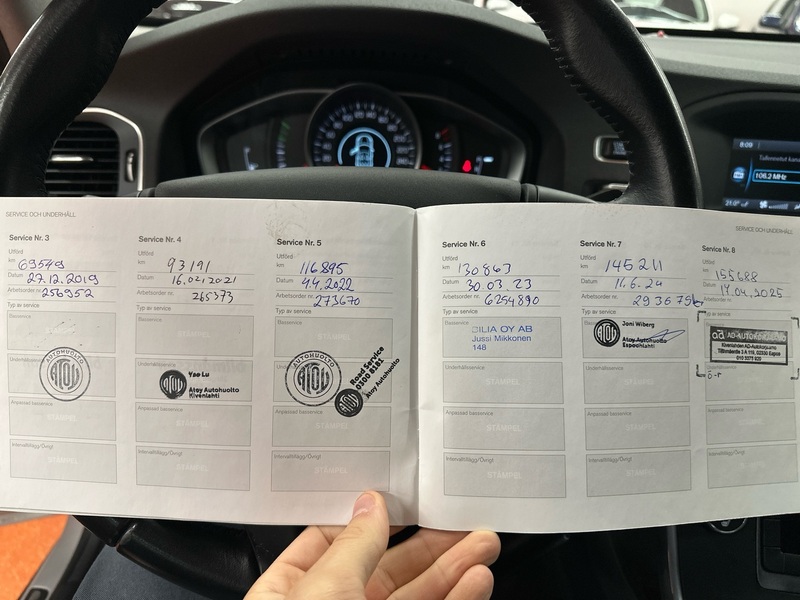 SERVICE OCH UNDERHÅLL
Service Nr. 3
Utförd
km 69549
Datum 27.12.2019
Arbetsorder nr. 256952
Typ av service
Basservice
AUTOHUOLTO
ATOY
Anpassad basservice
STÄMPEL
Intervalltillägg/Övrigt
STÄMPEL
Service Nr. 4
Utförd
km 93191
Datum 16.02.2021
Arbetsorder nr. 265373
Typ av service
Basservice
STÄMPEL
Underhållsservice
ATOY
Yao Lu
Atoy Autohuolto
Kivenlahti
Anpassad basservice
STÄMPEL
Intervalltillägg/Övrigt
STÄMPEL
Service Nr. 5
Utförd
km 116895
Datum 4.4.2022
Arbetsorder nr. 273670
Typ av service
Basservice
AUTOHUOLTO
ATOY
Road Service
0100 8181
Atoy Autohuolto
Anpassad basservice
STÄMPEL
Intervalltillägg/Övrigt
STÄMPEL
SERVICE OCH UNDERHÅLL
Service Nr. 6
Utförd
km 130863
Datum 30.03.23
Arbetsorder nr. 6254890
Typ av service
Basservice
BILIA OY AB
Jussi Mikkonen
148
Underhållsservice
STÄMPEL
Anpassad basservice
STÄMPEL
Intervalltillägg/Övrigt
STÄMPEL
Service Nr. 7
Utförd
km 145211
Datum 11.6.24
Arbetsorder nr.
Typ av service
Basservice
ATOY
Joni Wiberg
Atoy Autohuolto
Espoonlahti
Underhållsservice
STÄMPEL
Anpassad basservice
STÄMPEL
Intervalltillägg/Övrigt
STÄMPEL
Service Nr. 8
Utförd
km 155688
Datum 14.04.2025
Arbetsorder nr.
Typ av service
ad AD-AUTOKORJAAMO
Tillinmäentie 3 A 119, 02330 Espoo
010 3275 820
Underhållsservice
STÄMPEL
Anpassad basservice
STÄMPEL
Intervalltillägg/Övrigt
STÄMPEL
8:09
106.2 MHz